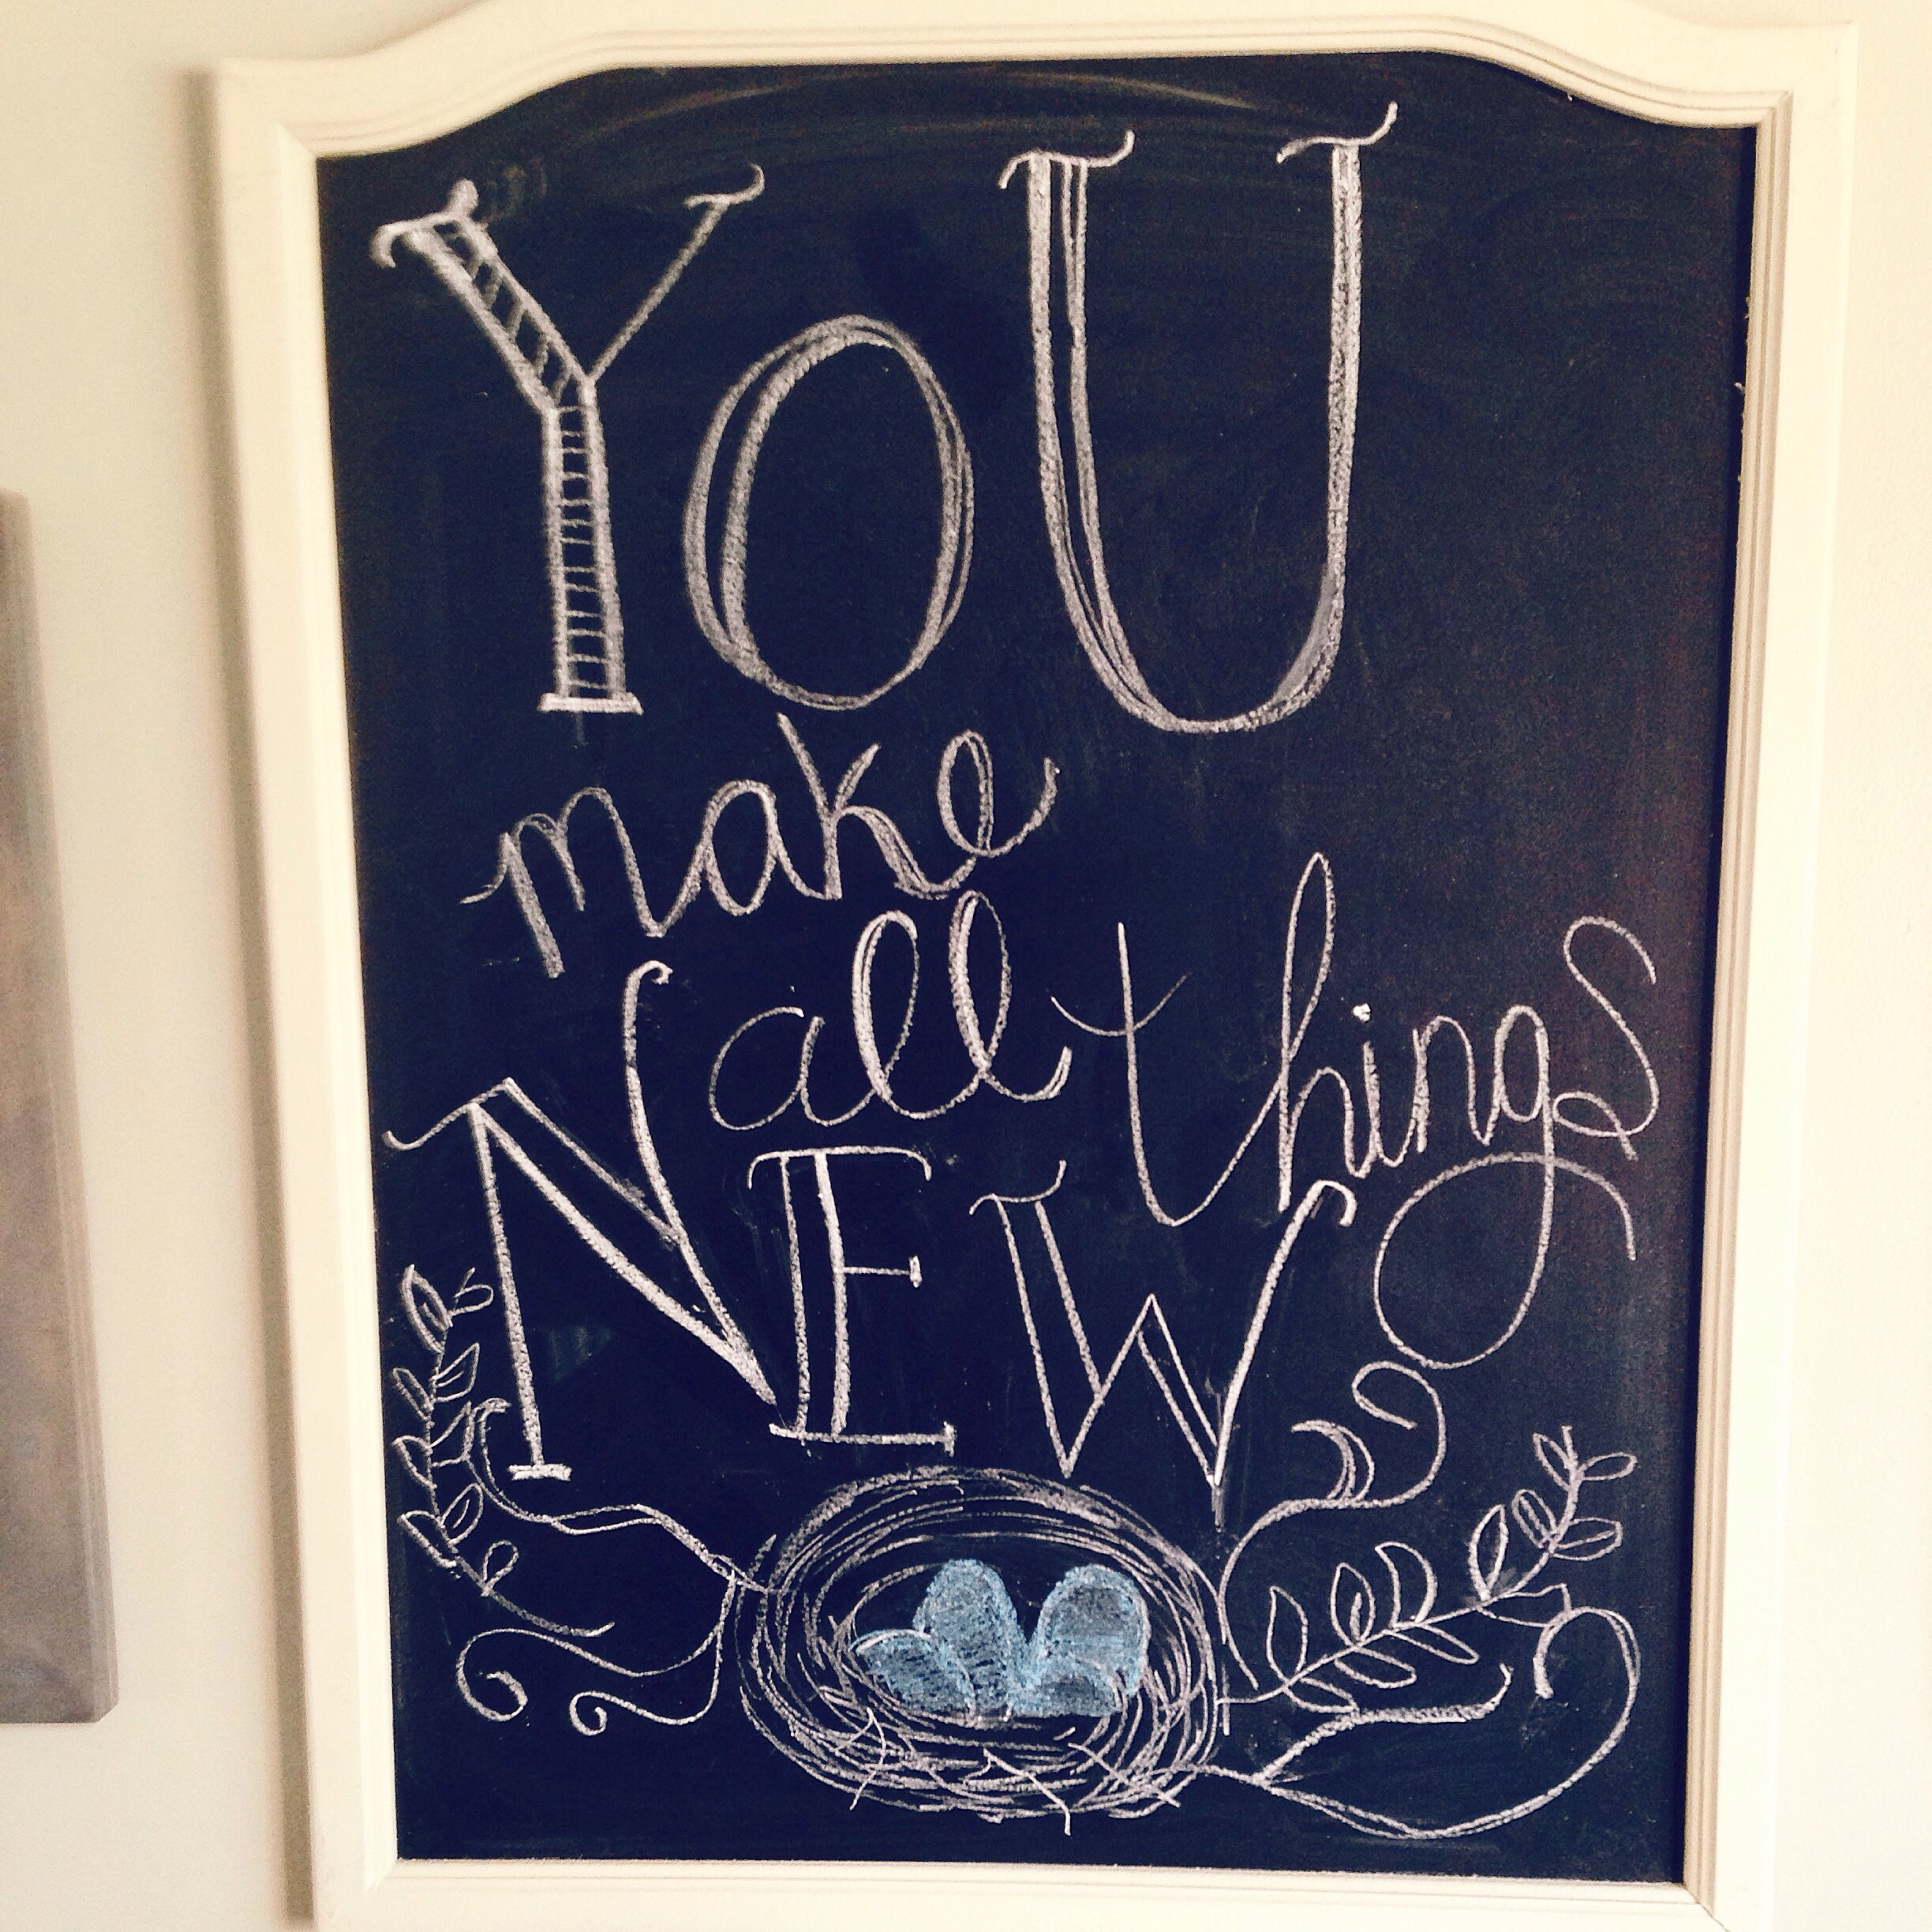 YOU
make
all things
NEW